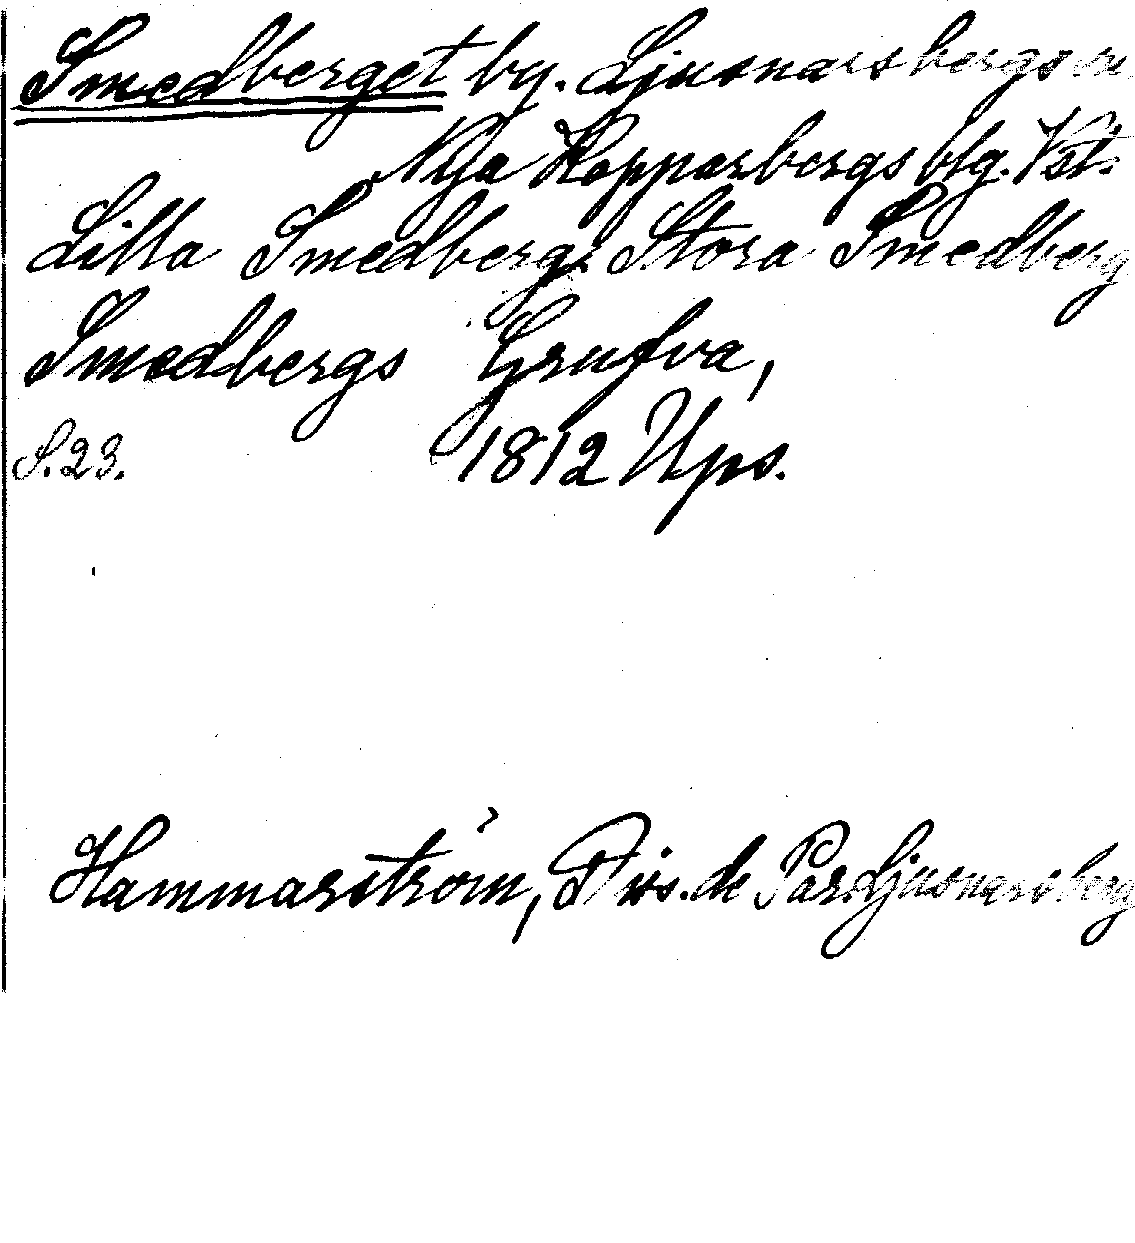 Smedberget by. Ljusnarsbergs sn
Nya Kopparbergs blg. Vstl.
Lilla Smedberg, Stora Smedberg
Smedbergs Grufva,
S. 23. 1812 Ups.
Hammarström, Diss. de Par. Ljusnarsberg